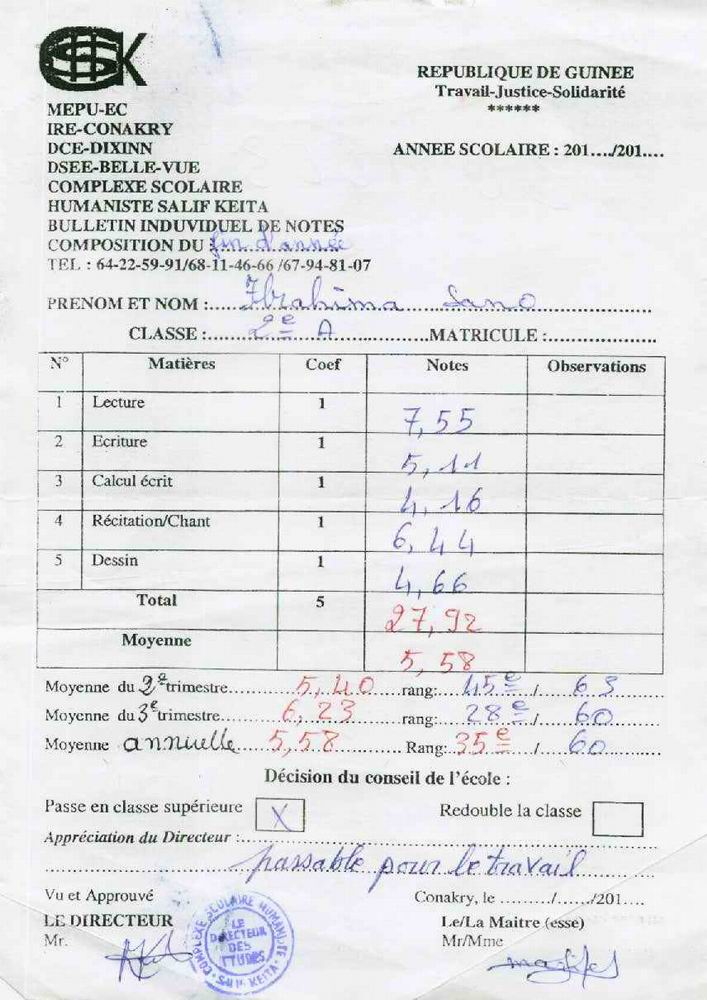 SK
REPUBLIQUE DE GUINEE
Travail-Justice-Solidarité
******
ANNEE SCOLAIRE : 201..../201....
MEPU-EC
IRE-CONAKRY
DCE-DIXINN
DSEE-BELLE-VUE
COMPLEXE SCOLAIRE
HUMANISTE SALIF KEITA
BULLETIN INDUVIDUEL DE NOTES
COMPOSITION DU fin d'année
TEL : 64-22-59-91/68-11-46-66 /67-94-81-07
PRENOM ET NOM : Ibrahima Sano
CLASSE : 2e A MATRICULE :
N° Matières Coef Notes Observations
1 Lecture 1 7,55
2 Ecriture 1 5,11
3 Calcul écrit 1 4,16
4 Récitation/Chant 1 6,44
5 Dessin 1 4,66
Total 5 27,92
Moyenne 5,58
Moyenne du 2e trimestre 5,40 rang: 45e / 63
Moyenne du 3e trimestre 6,23 rang: 28e / 60
Moyenne annuelle 5,58 Rang: 35e / 60
Décision du conseil de l'école :
Passe en classe supérieure X Redouble la classe
Appréciation du Directeur :
passable pour le travail
Vu et Approuvé Conakry, le ........./....../201....
LE DIRECTEUR Le/La Maitre (esse)
Mr. Mr/Mme
COMPLEXE SCOLAIRE HUMANISTE
SALIF KEITA
LE
DIRECTEUR
DES
ETUDES